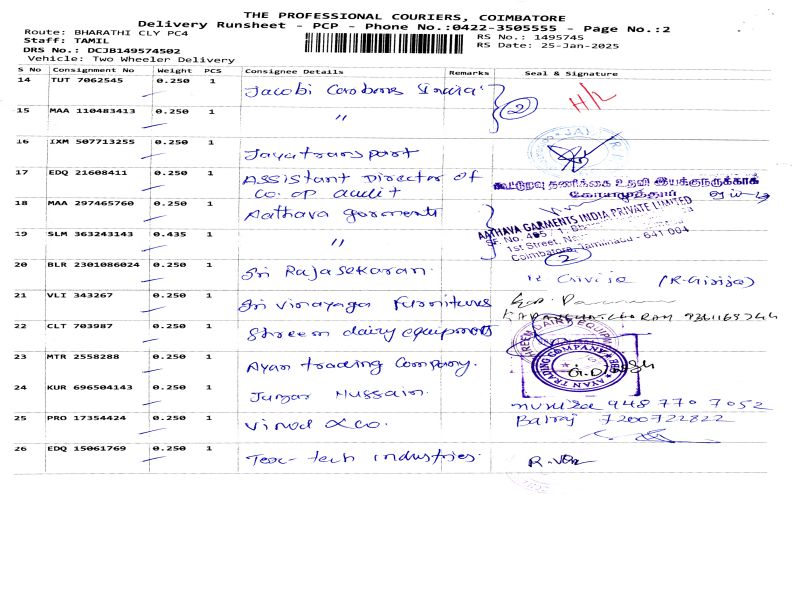 THE PROFESSIONAL COURIERS, COIMBATORE
Delivery Runsheet - PCP - Phone No.:0422-3505555 - Page No.:2
Route: BHARATHI CLY PC4
RS No.: 1495745
Staff: TAMIL
RS Date: 25-Jan-2025
DRS No.: DCJB149574502
Vehicle: Two Wheeler Delivery
S No Consignment No Weight PCS Consignee Details Remarks Seal & Signature
14 TUT 7062545 0.250 1 Jacobi Carbons India
H/L
15 MAA 110483413 0.250 1 "
2
16 IXM 507713255 0.250 1 Jayatransport
17 EDQ 21608411 0.250 1 Assistant Director of
co. op audit
கூட்டுறவு தணிக்கை உதவி இயக்குநருக்காக
கோயமுத்தூர்
18 MAA 297465760 0.250 1 Aathava garments
AATHAVA GARMENTS INDIA PRIVATE LIMITED
SF. No. 495 / 1,
1st Street,
Coimbatore, Tamilnadu - 641 004
19 SLM 363243143 0.435 1 "
2
20 BLR 2301086024 0.250 1 Sri Rajasekaran.
(R-Girija)
21 VLI 343267 0.250 1 Sri Vinayaga Furnitures
22 CLT 703987 0.250 1 Shreem dairy equipments
23 MTR 2558288 0.250 1 Ayan trading Company.
AYAN TRADING COMPANY
24 KUR 696504143 0.250 1 Hussain.
948 770 7052
25 PRO 17354424 0.250 1 Vinod & co.
Balraj 7200722822
26 EDQ 15061769 0.250 1 Tex-tech industries.